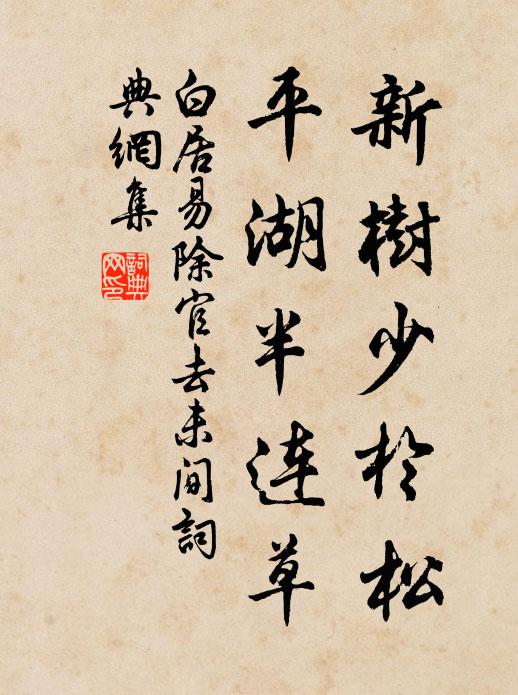 新樹少於松
平湖半連草
白居易除官去未間詞
典網集
詞典網印